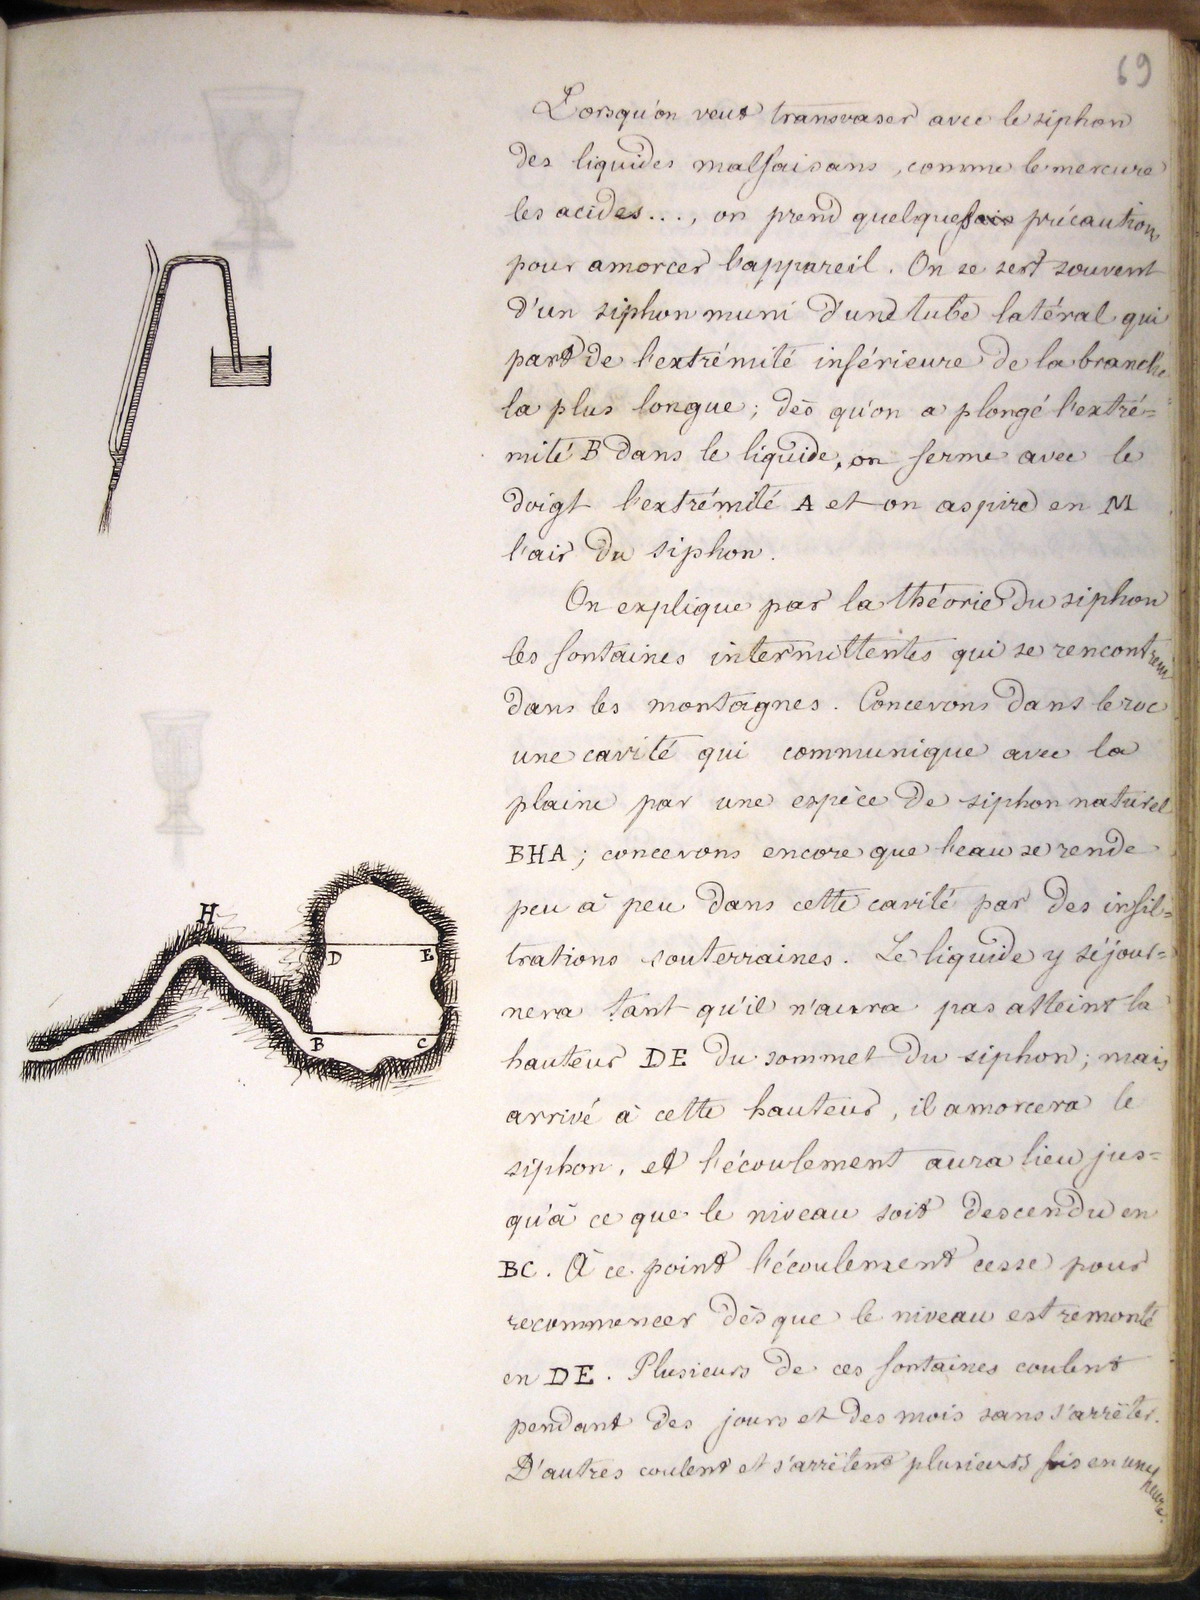 69
Lorsqu'on veut transvaser avec le siphon
des liquides malfaisans, comme le mercure
les acides..., on prend quelques précautions
pour amorcer l'appareil. On se sert souvent
d'un siphon muni d'une tube latéral qui
part de l'extrémité inférieure de la branche
la plus longue; dès qu'on a plongé l'extré=
mité B dans le liquide, on ferme avec le
doigt l'extrémité A et on aspire en M
l'air du siphon.
On explique par la théorie du siphon
les fontaines intermittentes qui se rencontrent
dans les montagnes. Concevons dans le roc
une cavité qui communique avec la
plaine par une espèce de siphon naturel
BHA; concevons encore que l'eau se rende
peu à peu dans cette cavité par des infil=
trations souterraines. Le liquide y séjour=
nera tant qu'il n'aura pas atteint la
hauteur DE du sommet du siphon; mais
arrivé à cette hauteur, il amorcera le
siphon, et l'écoulement aura lieu jus=
qu'à ce que le niveau soit descendu en
BC. À ce point l'écoulement cesse pour
recommencer dès que le niveau est remonté
en DE. Plusieurs de ces fontaines coulent
pendant des jours et des mois sans s'arrêter.
D'autres coulent et s'arrêtent plusieurs fois en une
heure.
H
D E
B C